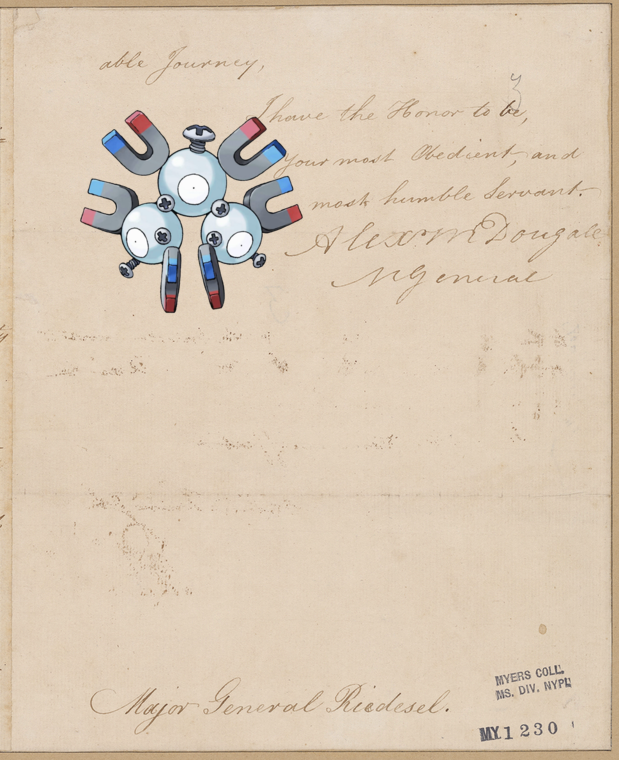 able Journey,
I have the Honor to be,
Your most Obedient, and
most humble Servant.
Alexr McDougall
MGeneral
Major General Riedesel.
MYERS COLL.
MS. DIV. NYPL
MY 1230